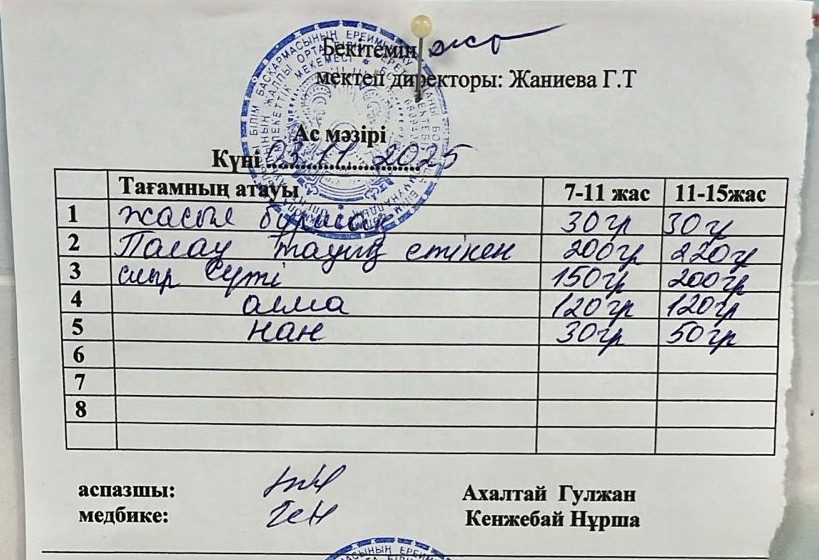 Бекітемін
мектеп директоры: Жаниева Г.Т
Ас мәзірі
Күні 03.11.2025
Тағамның атауы 7-11 жас 11-15жас
1 жасыл бұршақ 30гр 30гр
2 Палау тауық етімен 200гр 220гр
3 сиыр сүті 150гр 200гр
4 алма 120гр 120гр
5 нан 30гр 50гр
6
7
8
аспазшы: Ахалтай Гулжан
медбике: Кенжебай Нұрша